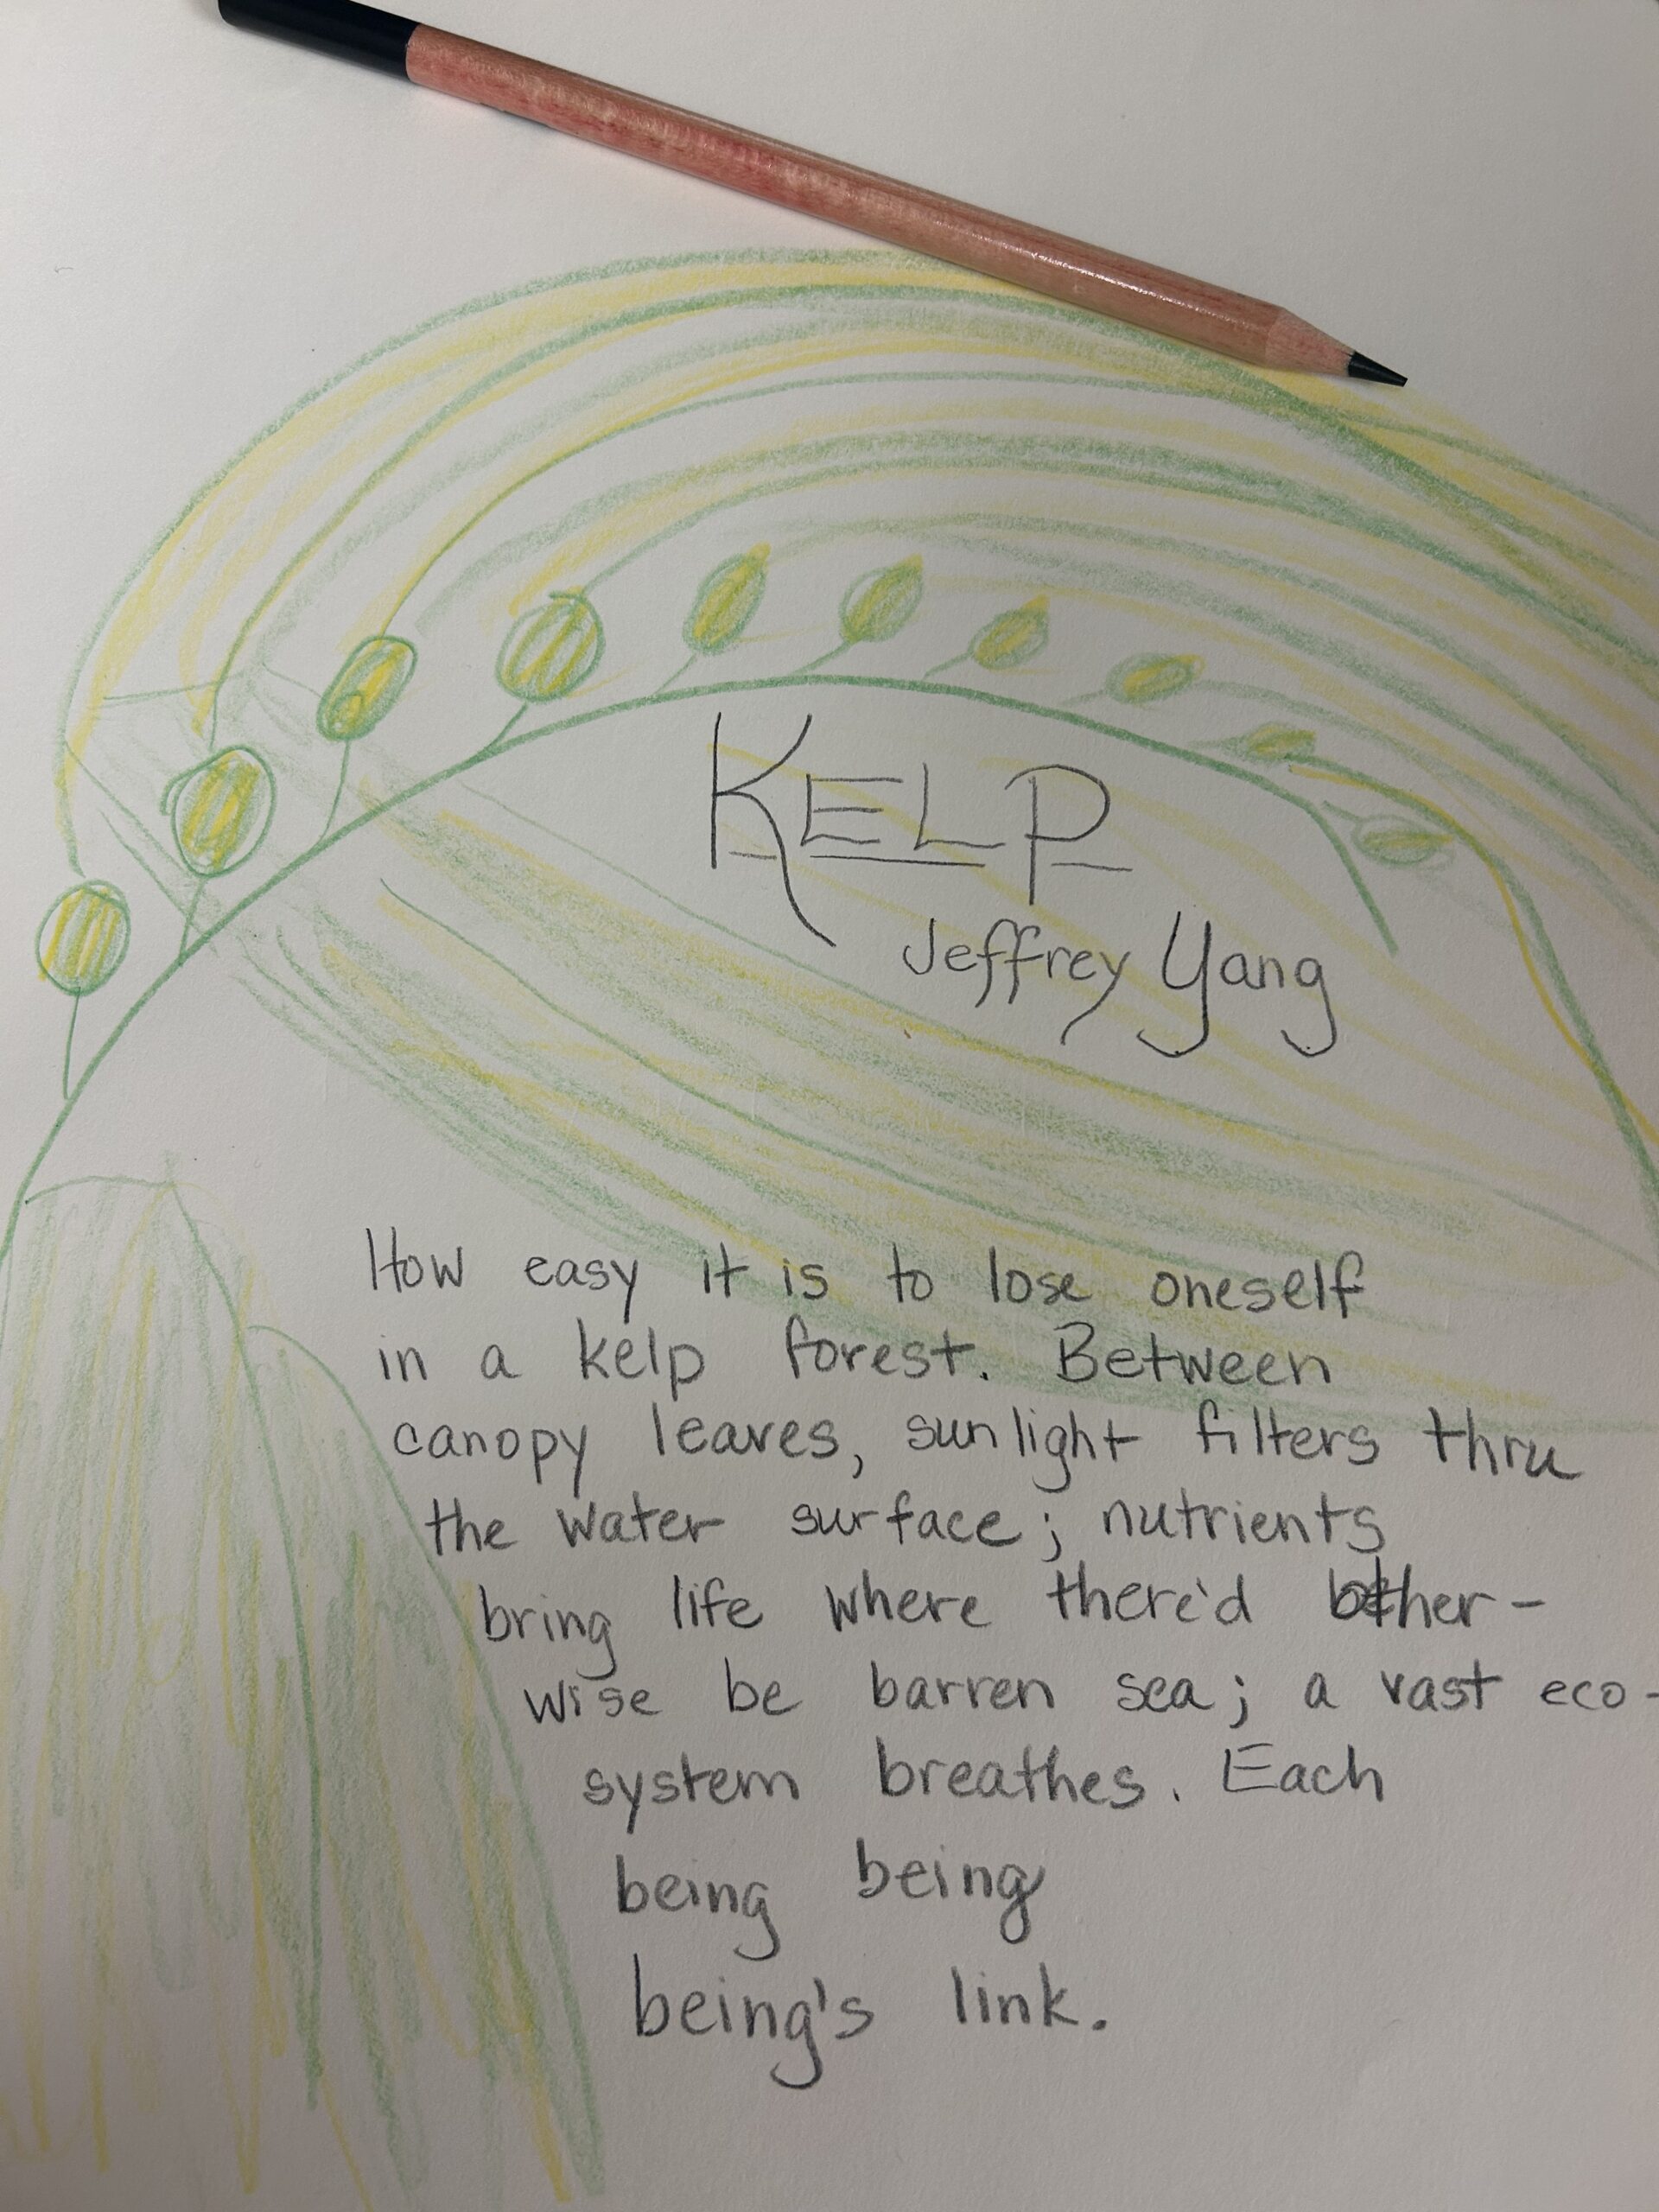 KELP
Jeffrey Yang
How easy it is to lose oneself
in a kelp forest. Between
canopy leaves, sunlight filters thru
the water surface; nutrients
bring life where there'd other-
wise be barren sea; a vast eco-
system breathes. Each
being being
being's link.